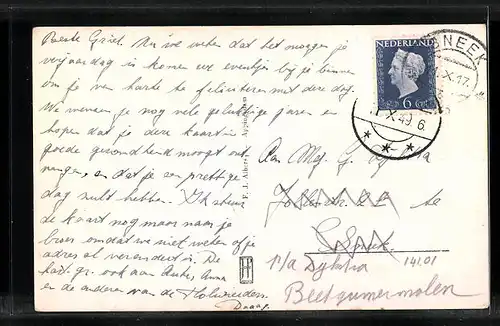 Beste Griet. Nu we weten dat het morgen je
verjaardag is komen we eventjes bij je binnen
om je van harte te feliciteren met deze dag.
We wensen je nog vele gelukkige jaren en
hopen dat je deze kaart in
goede gezondheid moogt ont-
vangen, en dat je een prettige
dag zult hebben. Ik stuur
de kaart nog maar naar je
broer omdat we niet weten of je
adres al veranderd is. De
hart. gr. ook aan Anna
en de anderen van de
Daag.
F. J. Appingedam
NEDERLAND
6
SNEEK
Aan Mej. G.
te
Sneek
p/a Dijkstra
14101
Beetgumermolen